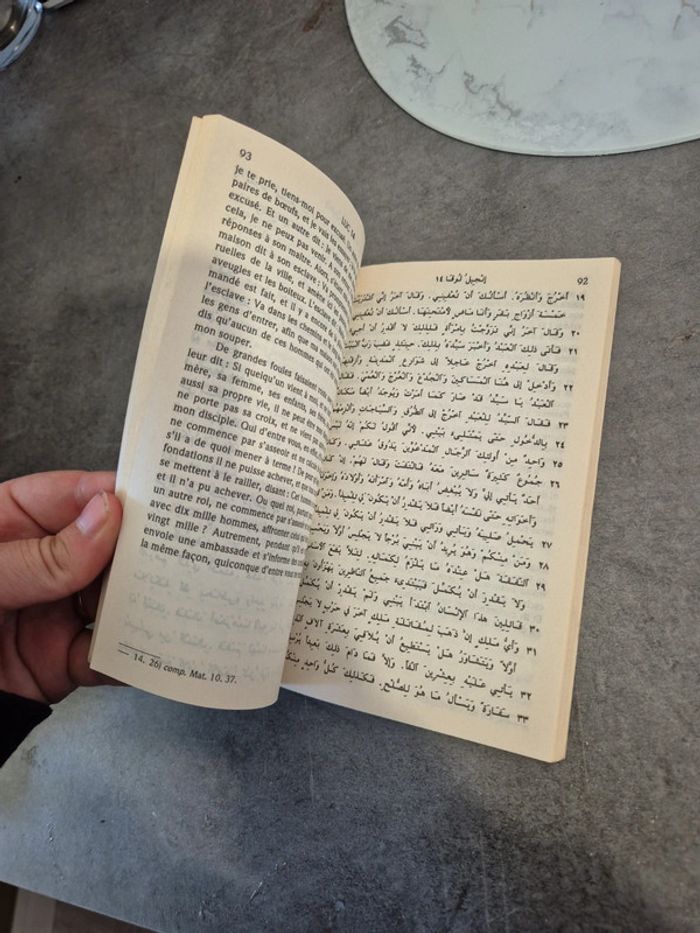 93
LUC 14
je te prie, tiens-moi pour excusé. Un
paires de bœufs, et je vais les
excusé. Et un autre dit : Je viens de
cela, je ne peux pas venir.
réponses à son maître. Alors,
maison dit à son esclave : Va
ruelles de la ville, et amène ici
aveugles et les boiteux. L'esclave dit
mandé est fait, et il y a encore de
l'esclave : Va dans les chemins et
les gens d'entrer, afin que ma maison
dis qu'aucun de ces hommes qui ont
mon souper.
De grandes foules faisaient
leur dit : Si quelqu'un vient à moi, et
mère, sa femme, ses enfants, ses
aussi sa propre vie, il ne peut être mon
ne porte pas sa croix, et ne vient pas
mon disciple. Qui d'entre vous, en effet,
ne commence par s'asseoir et
s'il a de quoi mener à terme ! De
fondations il ne puisse achever, et que
se mettent à le railler, disant : Cet
et il n'a pu achever. Ou quel roi, partant
un autre roi, ne commence par s'asseoir
avec dix mille hommes, affronter celui qui
vingt mille ? Autrement, pendant qu'il
envoie une ambassade et s'informe
la même façon, quiconque d'entre vous
14, 26) comp. Mat. 10. 37.
إنجيل لوقا ١٤
92
١٩ أخرج وأنظره. أسألك أن تعفيني. وقال آخر إني اشتريت
خمسة أزواج بقر وأنا ماض لأمتحنها. أسألك أن تعفيني.
٢٠ وقال آخر إني تزوجت بامرأة فلذلك لا أقدر أن أجي
٢١ فأتى ذلك العبد وأخبر سيده بذلك. حينئذ غضب رب
وقال لعبده اخرج عاجلا إلى شوارع المدينة وأزقتها
٢٢ وأدخل إلى هنا المساكين والجدع والعرج والعمي. فقال
العبد يا سيد قد صار كما أمرت ويوجد أيضا مكان
٢٣ فقال السيد للعبد اخرج إلى الطرق والسياجات وألزمهم
٢٤ بالدخول حتى يمتلئ بيتي. لأني أقول لكم إنه ليس
واحد من أولئك الرجال المدعوين يذوق عشائي.
٢٥ جموع كثيرة سائرين معه فالتفت وقال لهم.
٢٦ أحد يأتي إلي ولا يبغض أباه وأمه وامرأته وأولاده
وأخواته حتى نفسه أيضا فلا يقدر أن يكون لي تلميذا.
يحمل صليبه ويأتي ورائي فلا يقدر أن يكون لي
٢٧ ومن منكم وهو يريد أن يبني برجا لا يجلس أولا
٢٩ النفقة هل عنده ما يلزم لكماله. لئلا يضع الأساس
ولا يقدر أن يكمل فيبتدئ جميع الناظرين يهزأون
٣٠ قائلين هذا الإنسان ابتدأ يبني ولم يقدر أن يكمل
٣١ وأي ملك إن ذهب لمقاتلة ملك آخر في حرب لا يجلس
أولا ويتشاور هل يستطيع أن يلاقي بعشرة آلاف
٣٢ يأتي عليه بعشرين ألفا. وإلا فما دام ذلك بعيدا يرسل
٣٣ سفارة ويسأل ما هو للصلح. فكذلك كل واحد منكم